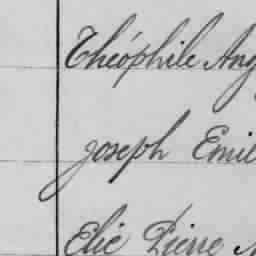 Théophile Ang
Joseph Emil
Elie Pierre